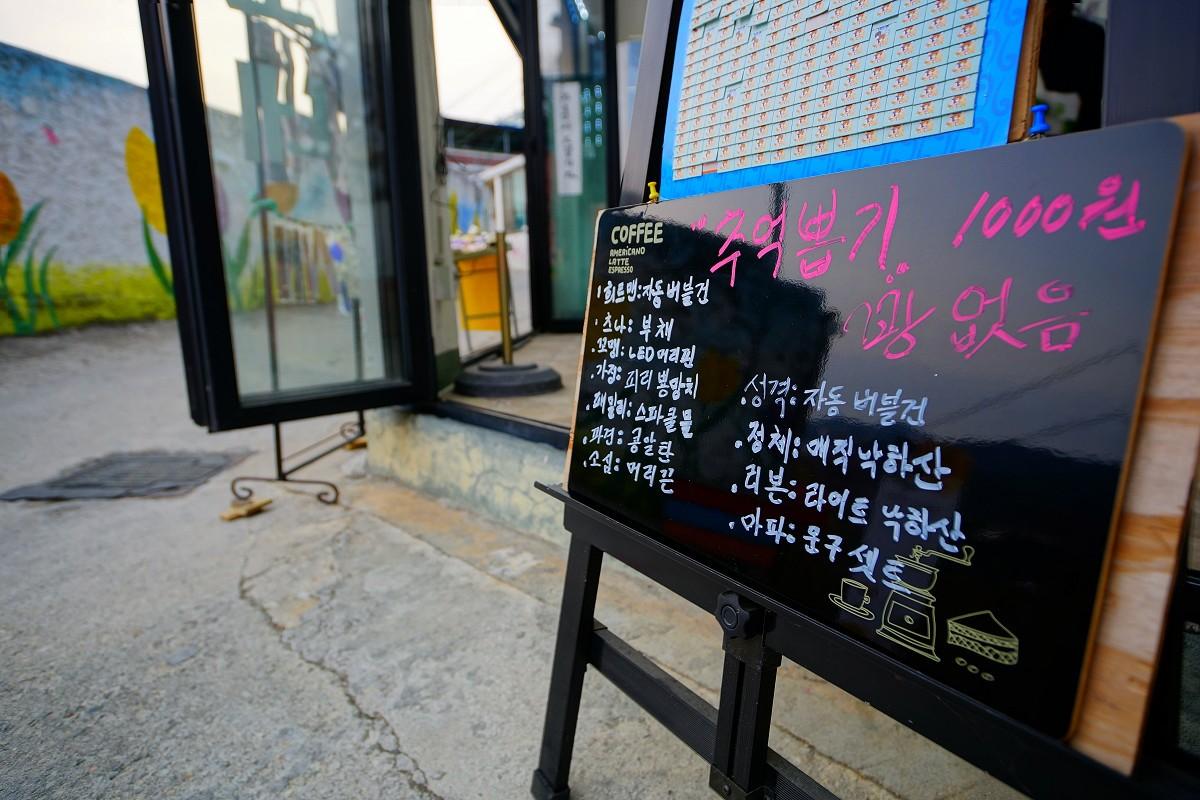 COFFEE
AMERICANO
LATTE
ESPRESSO
"추억뽑기" 1000원
꽝 없음
·히트맨:자동버블건
·츠나: 부채
·꼬맹: LED머리핀
·가정: 피리뽕망치
·패밀리: 스파클물
·파견: 콩알탄
·소심: 머리끈
·성격: 자동버블건
·정체: 매직낙하산
·리본: 라이트 낙하산
·마피: 문구셋트